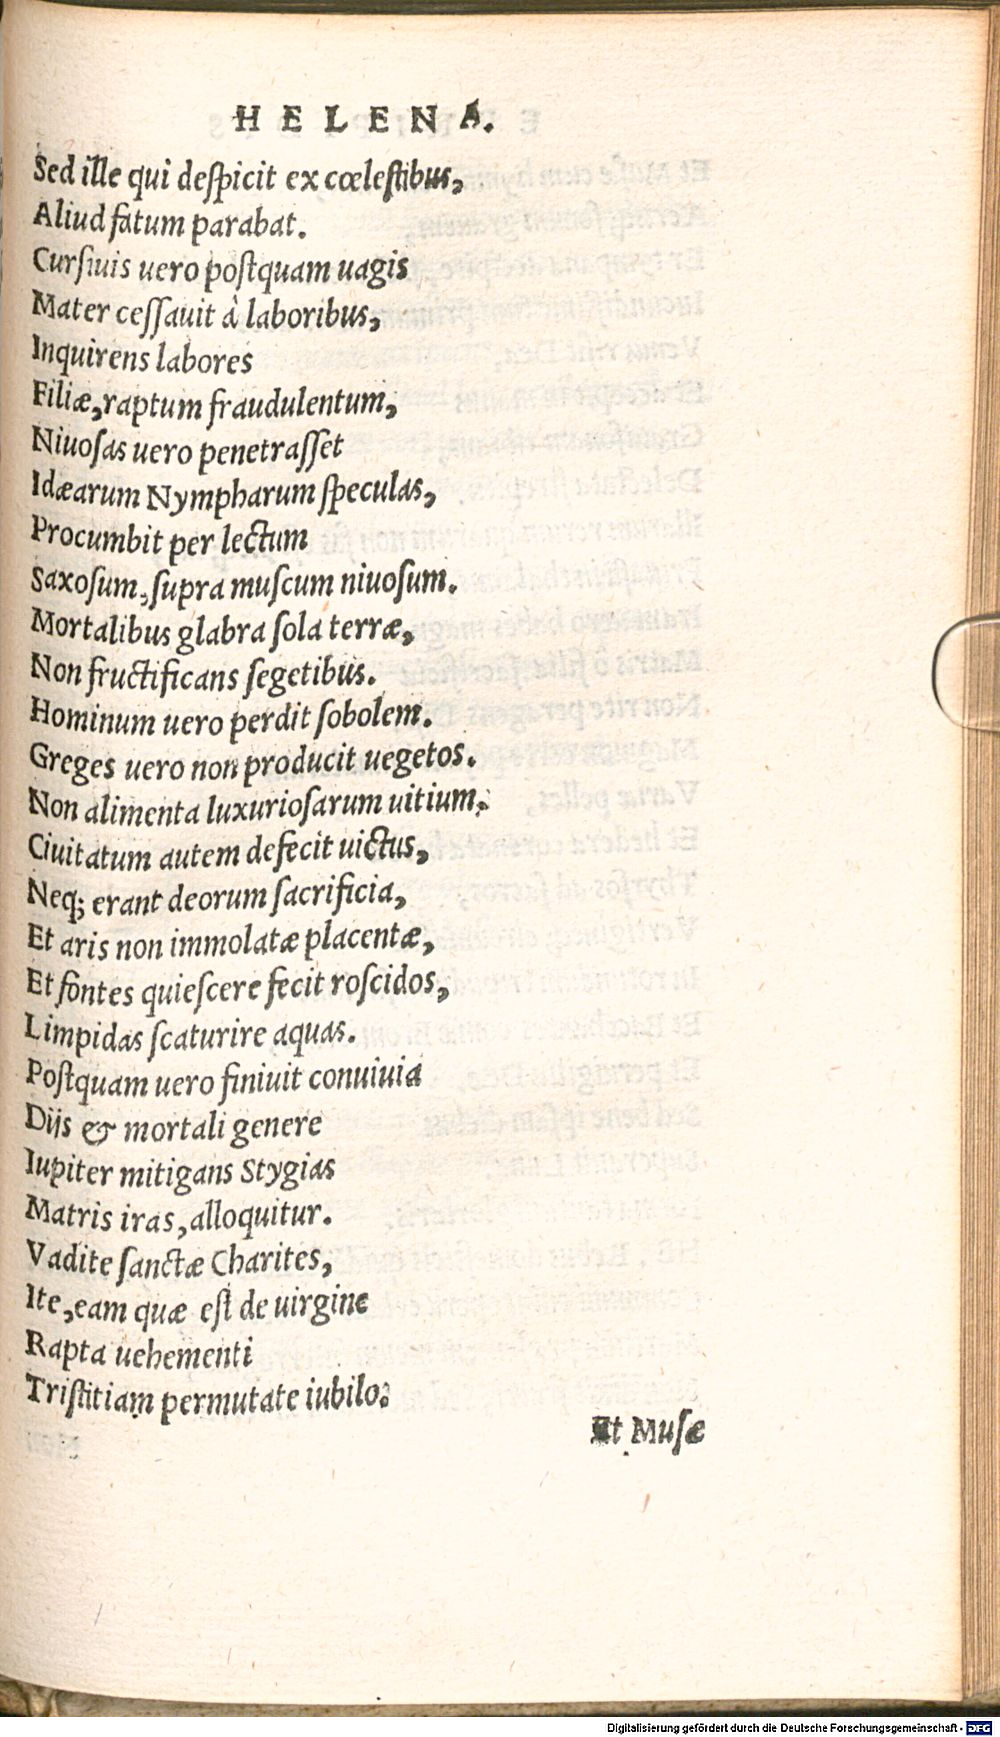 HELENA.
Sed ille qui deſpicit ex cœleſtibus,
Aliud fatum parabat.
Curſiuis uero poſtquam uagis
Mater ceſſauit à laboribus,
Inquirens labores
Filiæ, raptum fraudulentum,
Niuoſas uero penetraſſet
Idæarum Nympharum ſpeculas,
Procumbit per lectum
Saxoſum, ſupra muſcum niuoſum.
Mortalibus glabra ſola terræ,
Non fructificans ſegetibus.
Hominum uero perdit ſobolem.
Greges uero non producit uegetos.
Non alimenta luxurioſarum uitium.
Ciuitatum autem defecit uictus,
Neq; erant deorum ſacrificia,
Et aris non immolatæ placentæ,
Et fontes quieſcere fecit roſcidos,
Limpidas ſcaturire aquas.
Poſtquam uero finiuit conuiuia
Dijs & mortali genere
Iupiter mitigans Stygias
Matris iras, alloquitur.
Vadite ſanctæ Charites,
Ite, eam quæ eſt de uirgine
Rapta uehementi
Triſtitiam permutate iubilo:
Et Muſæ
Digitalisierung gefördert durch die Deutsche Forschungsgemeinschaft - DFG